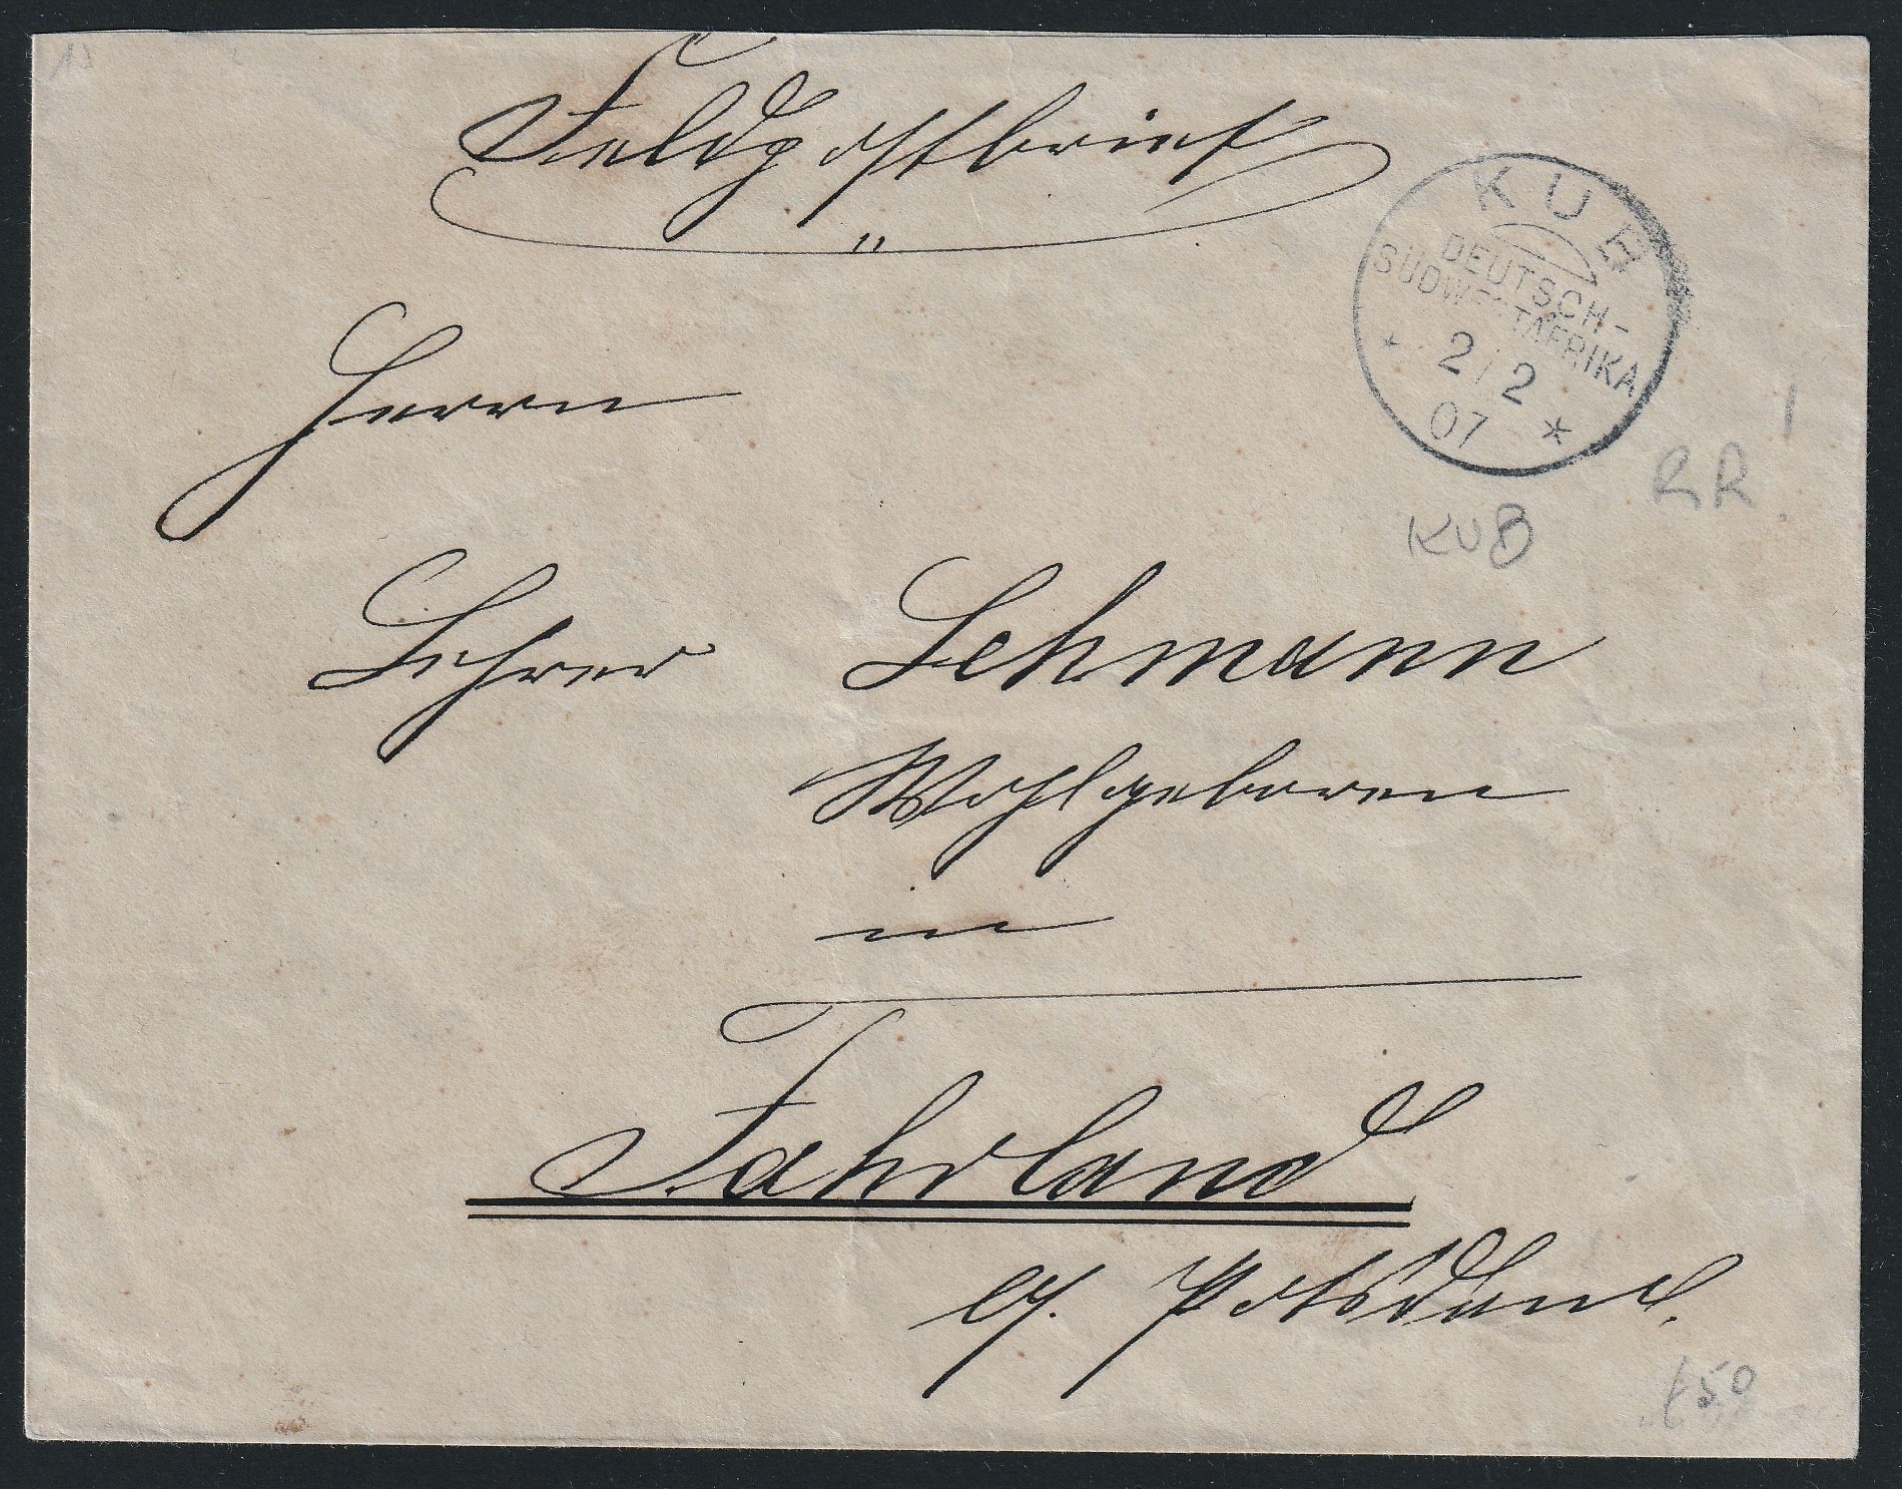 Feldpostbrief
KUB
DEUTSCH-
SÜDWESTAFRIKA
2/2
07
Herrn
RR!
KUB
Lehrer Lehmann
Wohlgeboren
in
Fahrland
b/. Potsdam.
150